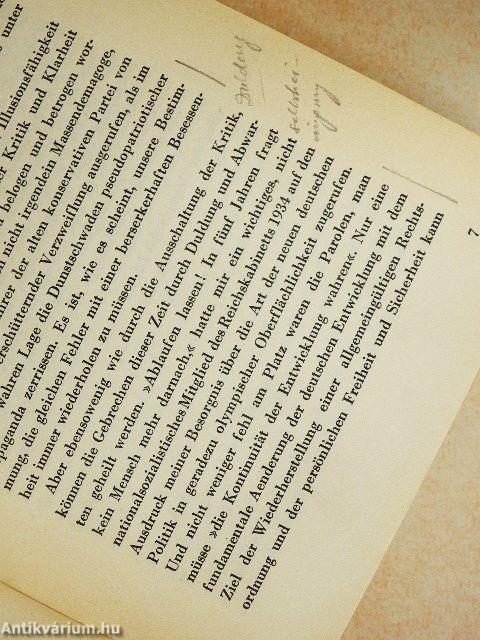 s unter
Illusionsfähigkeit
er Kritik und Klarheit
d belogen und betrogen wor-
nicht irgendein Massendemagoge,
hrer der alten konservativen Partei von
erschütternder Verzweiflung ausgerufen, als im
wahren Lage die Dunstschwaden pseudopatriotischer
paganda zerrissen. Es ist, wie es scheint, unsere Bestim-
mung, die gleichen Fehler mit einer berserkerhaften Besessen-
heit immer wiederholen zu müssen.
Aber ebensowenig wie durch die Ausschaltung der Kritik,
können die Gebrechen dieser Zeit durch Duldung und Anwar-
ten geheilt werden. »Ablaufen lassen! In fünf Jahren fragt
kein Mensch mehr darnach,« hatte mir ein wichtiges, nicht
nationalsozialistisches Mitglied des Reichskabinetts 1934 auf den
Ausdruck meiner Besorgnis über die Art der neuen deutschen
Politik in geradezu olympischer Oberflächlichkeit zugerufen.
Und nicht weniger fehl am Platz waren die Parolen, man
müsse »die Kontinuität der Entwicklung wahren«. Nur eine
fundamentale Aenderung der deutschen Entwicklung mit dem
Ziel der Wiederherstellung einer allgemeingültigen Rechts-
ordnung und der persönlichen Freiheit und Sicherheit kann
7
Duldung
Antikvárium.hu